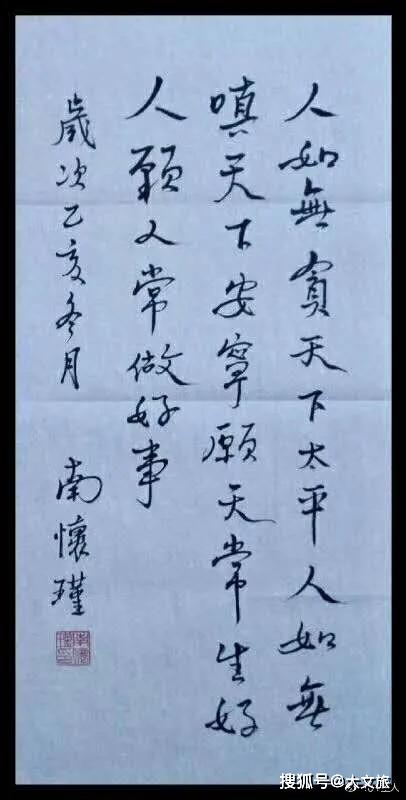 人如無貪天下太平人如無
嗔天下安寧願天常生好
人願人常做好事
歲次乙亥冬月 南懷瑾
搜狐号@大文旅